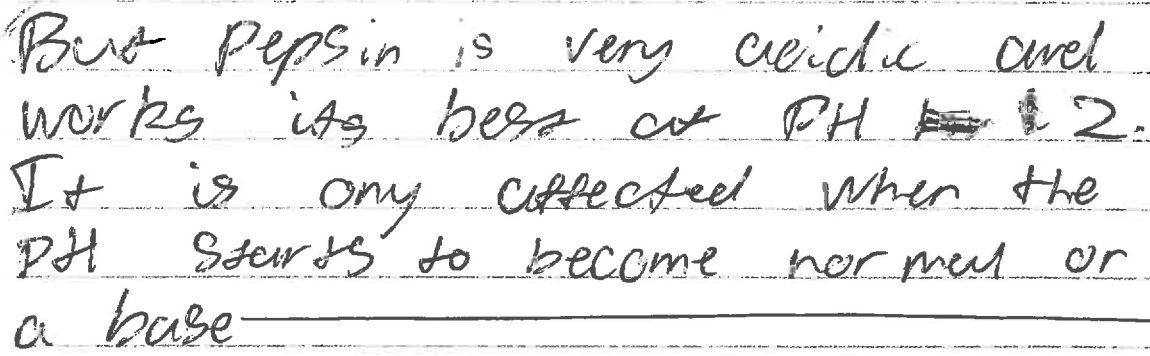 But Pepsin is very acidic and
works its best at PH 2.
It is ony affected when the
PH starts to become normal or
a base